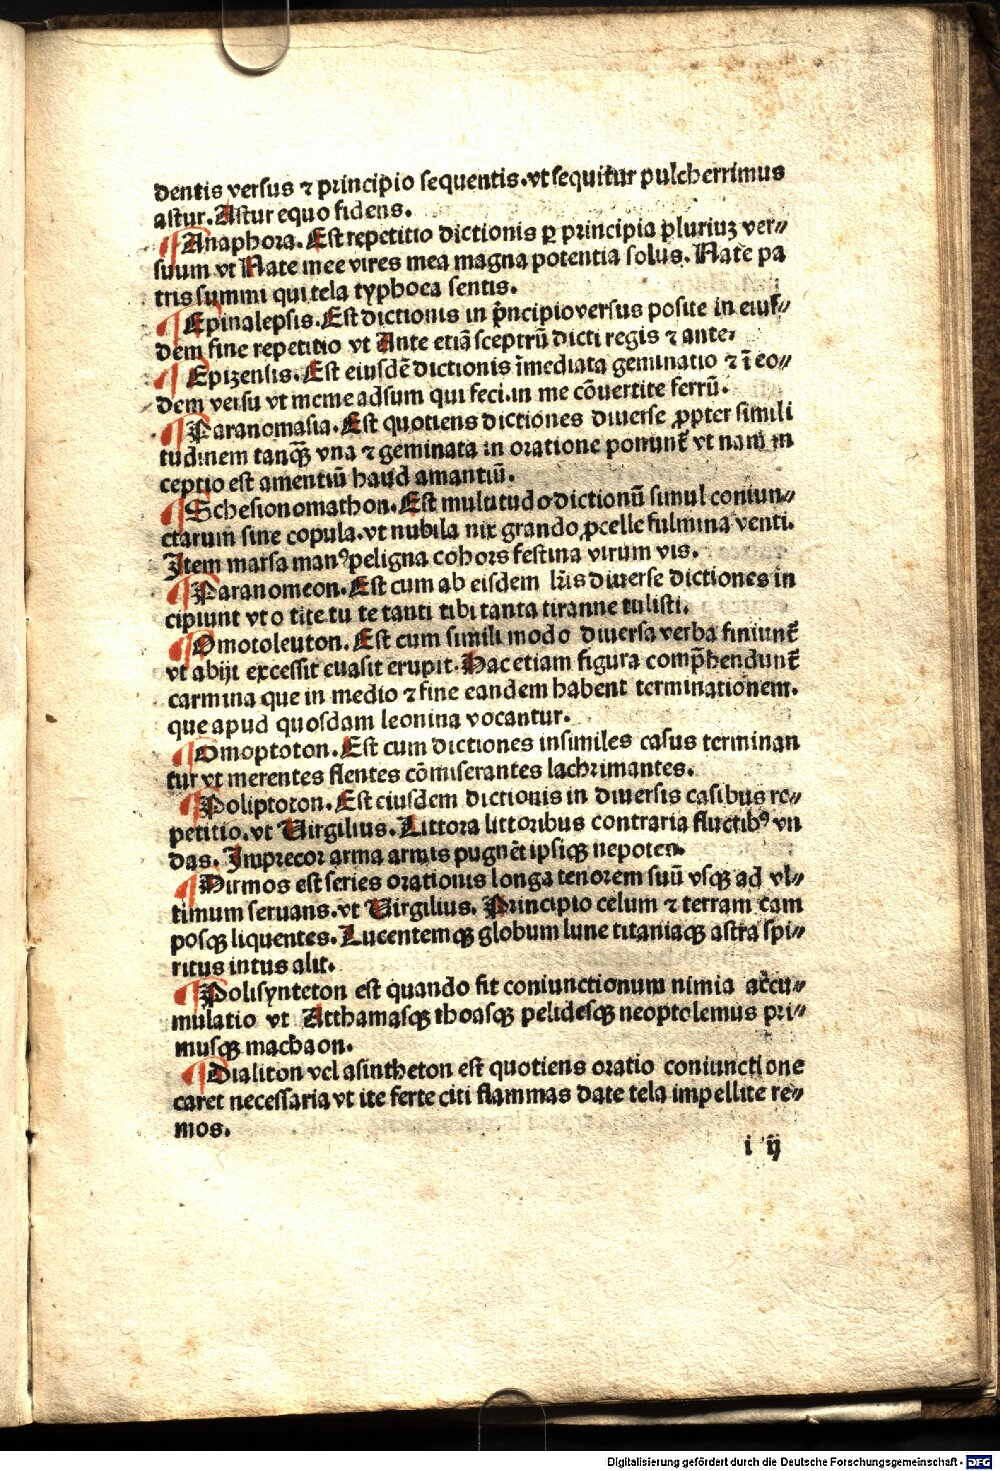 dentis versus ⁊ principio sequentis. vt sequitur pulcherrimus
astur. Astur equo fidens.
¶ Anaphora. Est repetitio dictionis ꝑ principia pluriuꝫ ver⸗
suum vt Nate mee vires mea magna potentia solus. Nate pa
tris summi qui tela typhoea sentis.
¶ Epinalepsis. Est dictionis in pͥncipio versus posite in eius⸗
dem fine repetitio vt Ante etiā sceptrū dicti regis ⁊ ante.
¶ Epizensis. Est eiusdē dictionis īmediata geminatio ⁊ ī eo⸗
dem versu vt me me adsum qui feci. in me cōuertite ferrū.
¶ Paranomasia. Est quotiens dictiones diuerse ꝓpter simili
tudinem tanqꝫ vna ⁊ geminata in oratione ponunt᷑ vt nam in
ceptio est amentiū haud amantiū.
¶ Schesionomathon. Est multitudo dictionū simul coniun⸗
ctarum sine copula. vt nubila nix grando ꝓcelle fulmina venti.
Item marsa manꝰ peligna cohors festina virum vis.
¶ Paranomeon. Est cum ab eisdem lr̄is diuerse dictiones in
cipiunt vt o tite tu te tanti tibi tanta tiranne tulisti.
¶ Omotoleuton. Est cum simili modo diuersa verba finiunt᷑
vt abijt excessit euasit erupit. Hac etiam figura comp̄hendunt᷑
carmina que in medio ⁊ fine eandem habent terminationem.
que apud quosdam leonina vocantur.
¶ Omoptoton. Est cum dictiones insimiles casus terminan
tur vt merentes flentes cōmiserantes lachrimantes.
¶ Poliptoton. Est eiusdem dictionis in diuersis casibus re⸗
petitio. vt Virgilius. Littora littoribus contraria fluctibꝰ vn
das. Imprecor arma armis pugnēt ipsiqꝫ nepotes.
¶ Hirmos est series orationis longa tenorem suū vsqꝫ ad vl⸗
timum seruans. vt Virgilius. Principio celum ⁊ terram cam
posqꝫ liquentes. Lucentemqꝫ globum lune titaniaqꝫ astra spi⸗
ritus intus alit.
¶ Polisynteton est quando fit coniunctionum nimia accu⸗
mulatio vt Atthamasqꝫ thoasqꝫ pelidesqꝫ neoptolemus pri⸗
musqꝫ machaon.
¶ Dialiton vel asintheton est quotiens oratio coniunctione
caret necessaria vt ite ferte citi flammas date tela impellite re⸗
mos.
i ij
Digitalisierung gefördert durch die Deutsche Forschungsgemeinschaft - DFG